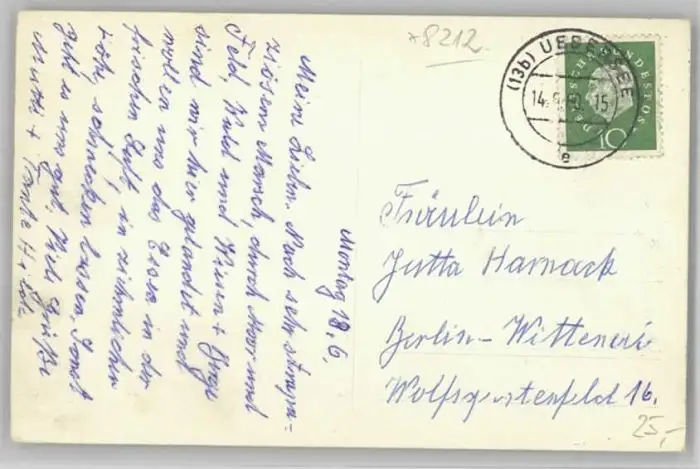 *8212
(13b) UEBERSEE
15
e
DEUTSCHE BUNDESPOST
10
Montag 18. 6.
Meine Lieben. Nach sehr strapa-
ziösem Marsch, durch Moor und
Feld, Wald und Wiesen + Berge
sind wir hier gelandet und
wollen uns das Essen in der
frischen Luft, in
schmecken lassen. Sonst
geht es uns gut. Viele Grüße
Mutti + Tante H.
Fräulein
Jutta Harnack
Berlin-Wittenau
Wolfsgartenfeld 16.
25,-